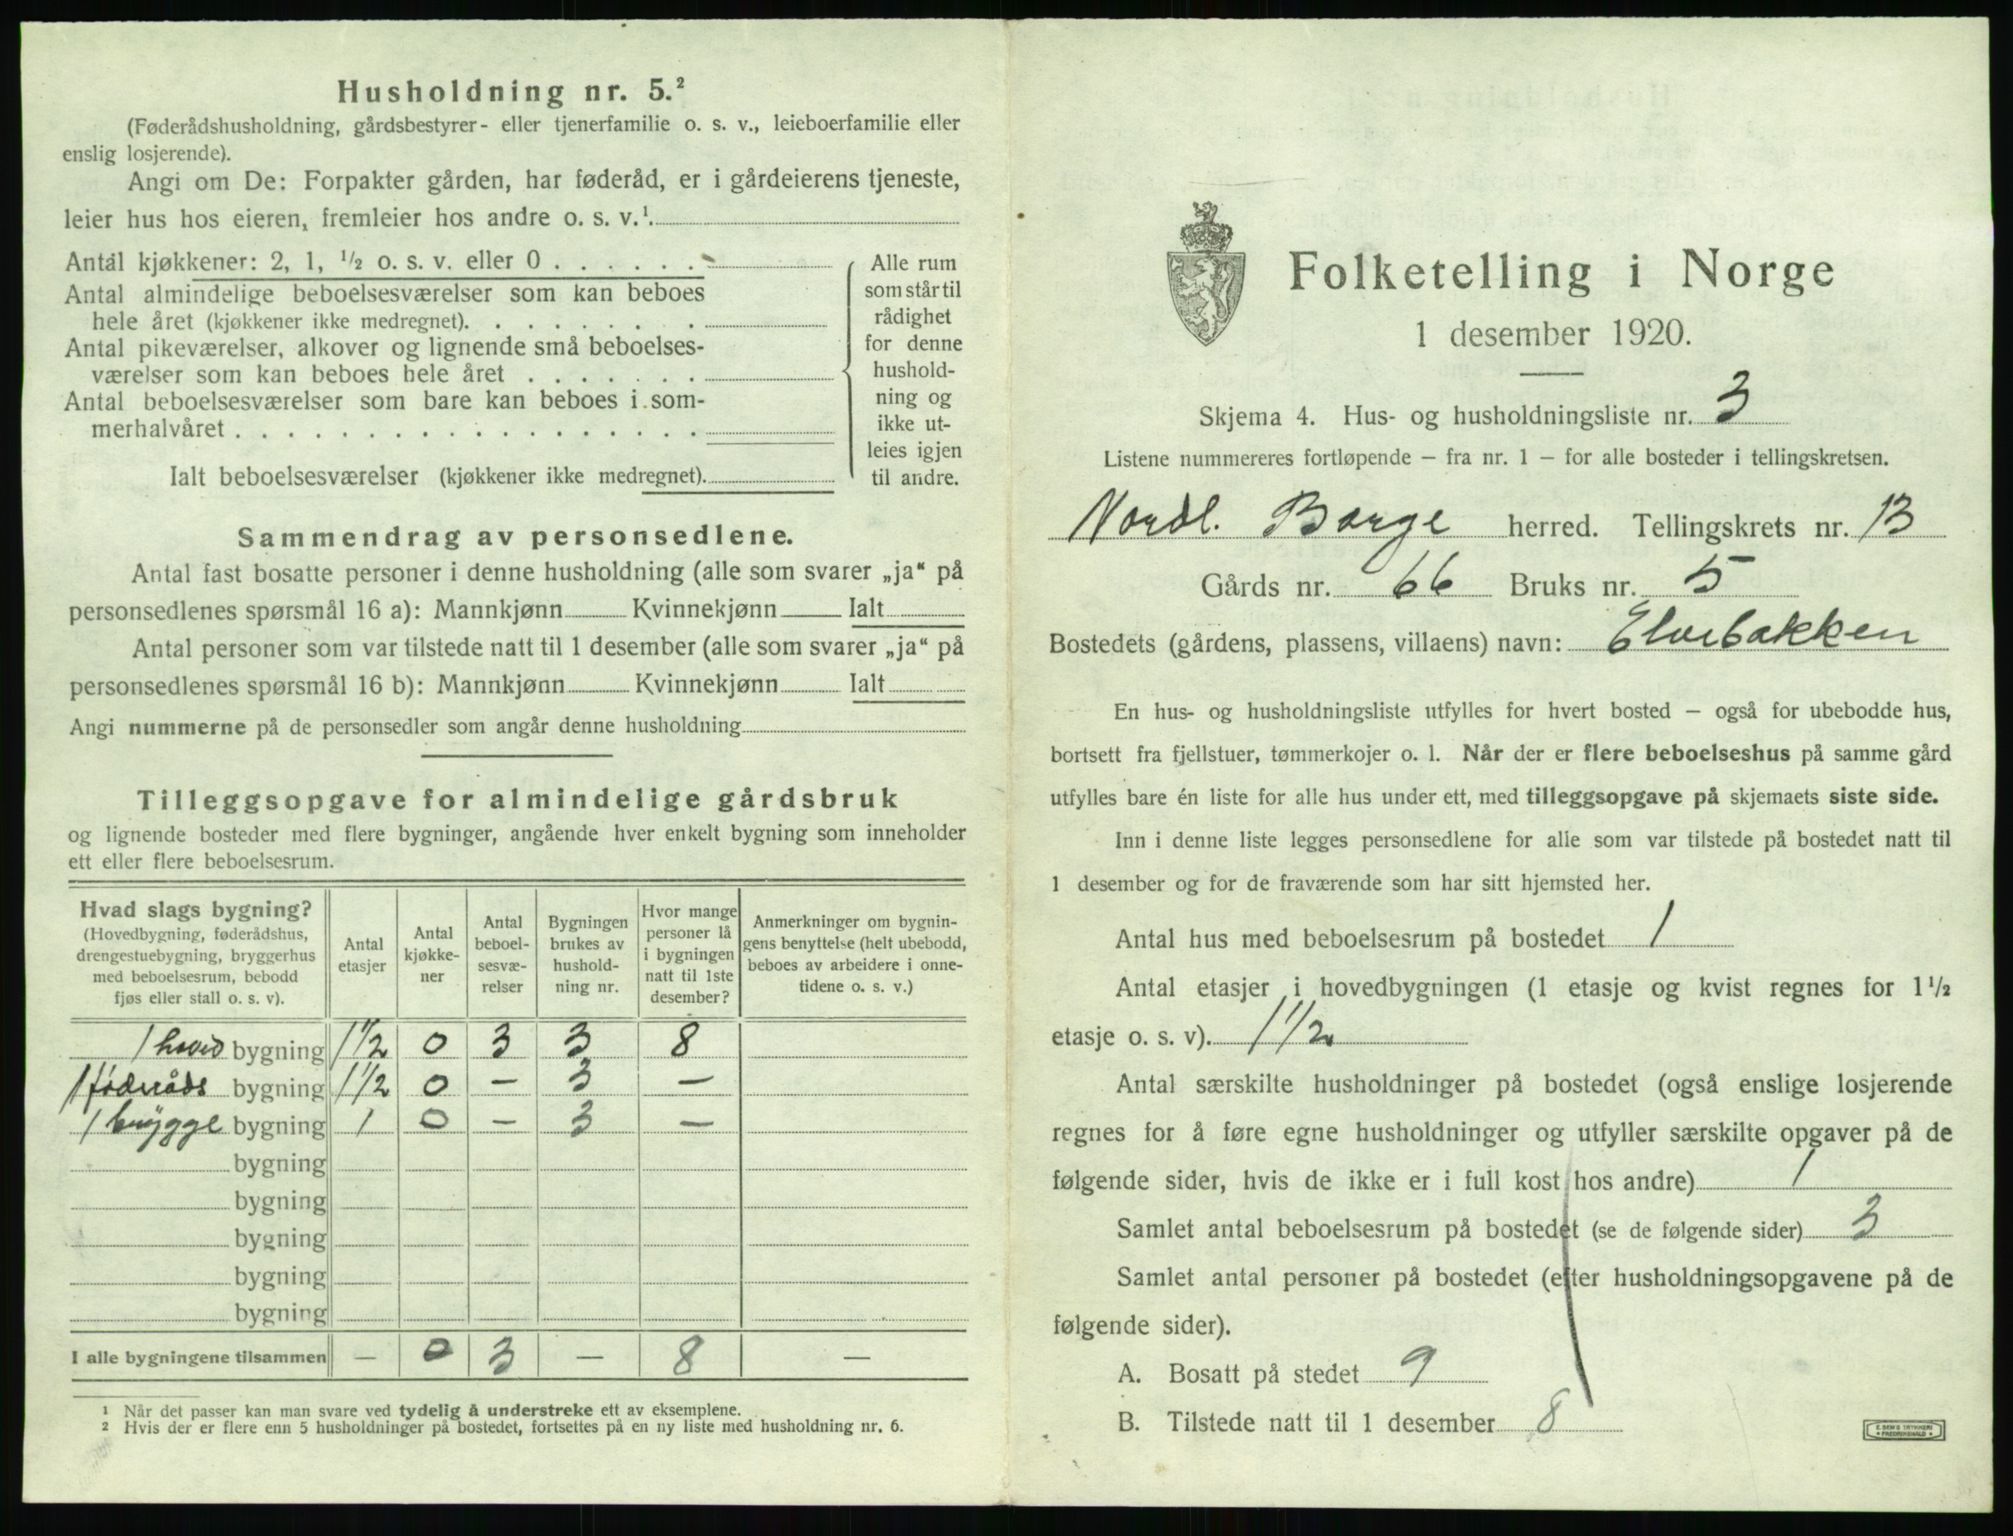 Husholdning nr. 5.²
(Føderådshusholdning, gårdsbestyrer- eller tjenerfamilie o. s. v., leieboerfamilie eller
enslig losjerende).
Angi om De: Forpakter gården, har føderåd, er i gårdeierens tjeneste,
leier hus hos eieren, fremleier hos andre o. s. v.¹.
Antal kjøkkener: 2, 1, ½ o. s. v. eller 0 . . . . . .
Antal almindelige beboelsesværelser som kan beboes
hele året (kjøkkener ikke medregnet). . . . . . . . .
Antal pikeværelser, alkover og lignende små beboelses-
værelser som kan beboes hele året . . . . . . .
Antal beboelsesværelser som bare kan beboes i som-
merhalvåret . . . . . . . . . . . . . . . . . .
Ialt beboelsesværelser (kjøkkener ikke medregnet).
Alle rum
som står til
rådighet
for denne
hushold-
ning og
ikke ut-
leies igjen
til andre.
Sammendrag av personsedlene.
Antal fast bosatte personer i denne husholdning (alle som svarer „ja“ på
personsedlenes spørsmål 16 a): Mannkjønn Kvinnekjønn Ialt
Antal personer som var tilstede natt til 1 desember (alle som svarer „ja“ på
personsedlenes spørsmål 16 b): Mannkjønn Kvinnekjønn Ialt
Angi nummerne på de personsedler som angår denne husholdning
Tilleggsopgave for almindelige gårdsbruk
og lignende bosteder med flere bygninger, angående hver enkelt bygning som inneholder
ett eller flere beboelsesrum.
Hvad slags bygning?
(Hovedbygning, føderådshus,
drengestuebygning, bryggerhus
med beboelsesrum, bebodd
fjøs eller stall o. s. v).
Antal
etasjer
Antal
kjøkke-
ner
Antal
beboel-
sesvæ-
relser
Bygningen
brukes av
hushold-
ning nr.
Hvor mange
personer lå
i bygningen
natt til 1ste
desember?
Anmerkninger om bygnin-
gens benyttelse (helt ubebodd,
beboes av arbeidere i onne-
tidene o. s. v.)
1 hoved bygning 1½ 0 3 3 8
1 føderåds bygning 1½ 0 — 3 —
1 brygge bygning 1 0 — 3 —
bygning
bygning
bygning
bygning
bygning
I alle bygningene tilsammen — 0 3 — 8 —
¹ Når det passer kan man svare ved tydelig å understreke ett av eksemplene.
² Hvis der er flere enn 5 husholdninger på bostedet, fortsettes på en ny liste med husholdning nr. 6.
Folketelling i Norge
1 desember 1920.
Skjema 4. Hus- og husholdningsliste nr. 3
Listene nummereres fortløpende – fra nr. 1 – for alle bosteder i tellingskretsen.
Nordl. Borge herred. Tellingskrets nr. 13
Gårds nr. 66 Bruks nr. 5
Bostedets (gårdens, plassens, villaens) navn: Elvebakken
En hus- og husholdningsliste utfylles for hvert bosted – også for ubebodde hus,
bortsett fra fjellstuer, tømmerkojer o. l. Når der er flere beboelseshus på samme gård
utfylles bare én liste for alle hus under ett, med tilleggsopgave på skjemaets siste side.
Inn i denne liste legges personsedlene for alle som var tilstede på bostedet natt til
1 desember og for de fraværende som har sitt hjemsted her.
Antal hus med beboelsesrum på bostedet 1
Antal etasjer i hovedbygningen (1 etasje og kvist regnes for 1½
etasje o. s. v). 1½
Antal særskilte husholdninger på bostedet (også enslige losjerende
regnes for å føre egne husholdninger og utfyller særskilte opgaver på de
følgende sider, hvis de ikke er i full kost hos andre) 1
Samlet antal beboelsesrum på bostedet (se de følgende sider) 3
Samlet antal personer på bostedet (efter husholdningsopgavene på de
følgende sider).
A. Bosatt på stedet 9
B. Tilstede natt til 1 desember 8